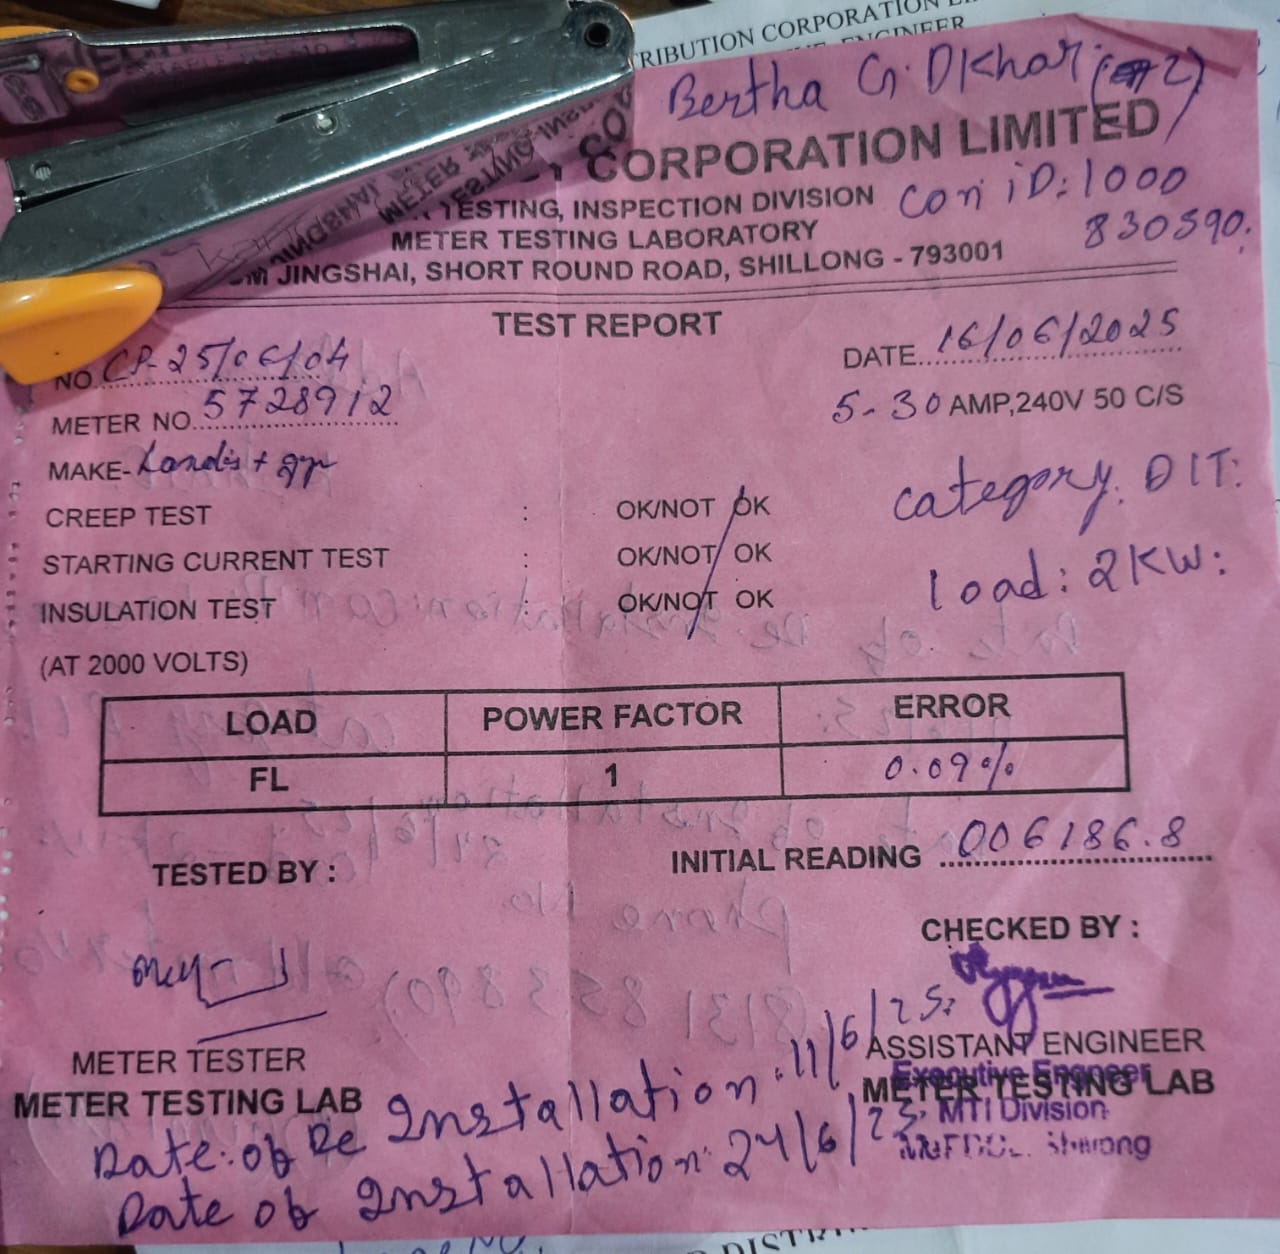 TRIBUTION CORPORATION
ENGINEER
Bertha G. DKhar
CORPORATION LIMITED
TESTING, INSPECTION DIVISION
Con iD: 1000
830590.
METER TESTING LABORATORY
JINGSHAI, SHORT ROUND ROAD, SHILLONG - 793001
TEST REPORT
NO CP-25/06/04
DATE 16/06/2025
METER NO. 5728912
5-30 AMP,240V 50 C/S
MAKE- Landis + gyr
Category: DLT:
CREEP TEST : OK/NOT OK
STARTING CURRENT TEST : OK/NOT OK
load: 2KW:
INSULATION TEST : OK/NOT OK
(AT 2000 VOLTS)
LOAD POWER FACTOR ERROR
FL 1 0.09%
INITIAL READING 006186.8
TESTED BY :
CHECKED BY :
METER TESTER
ASSISTANT ENGINEER
METER TESTING LAB
METER TESTING LAB
Executive Engineer
MTI Division
Date of De Installation: 11/6/25:
Date of Installation: 24/6/25: